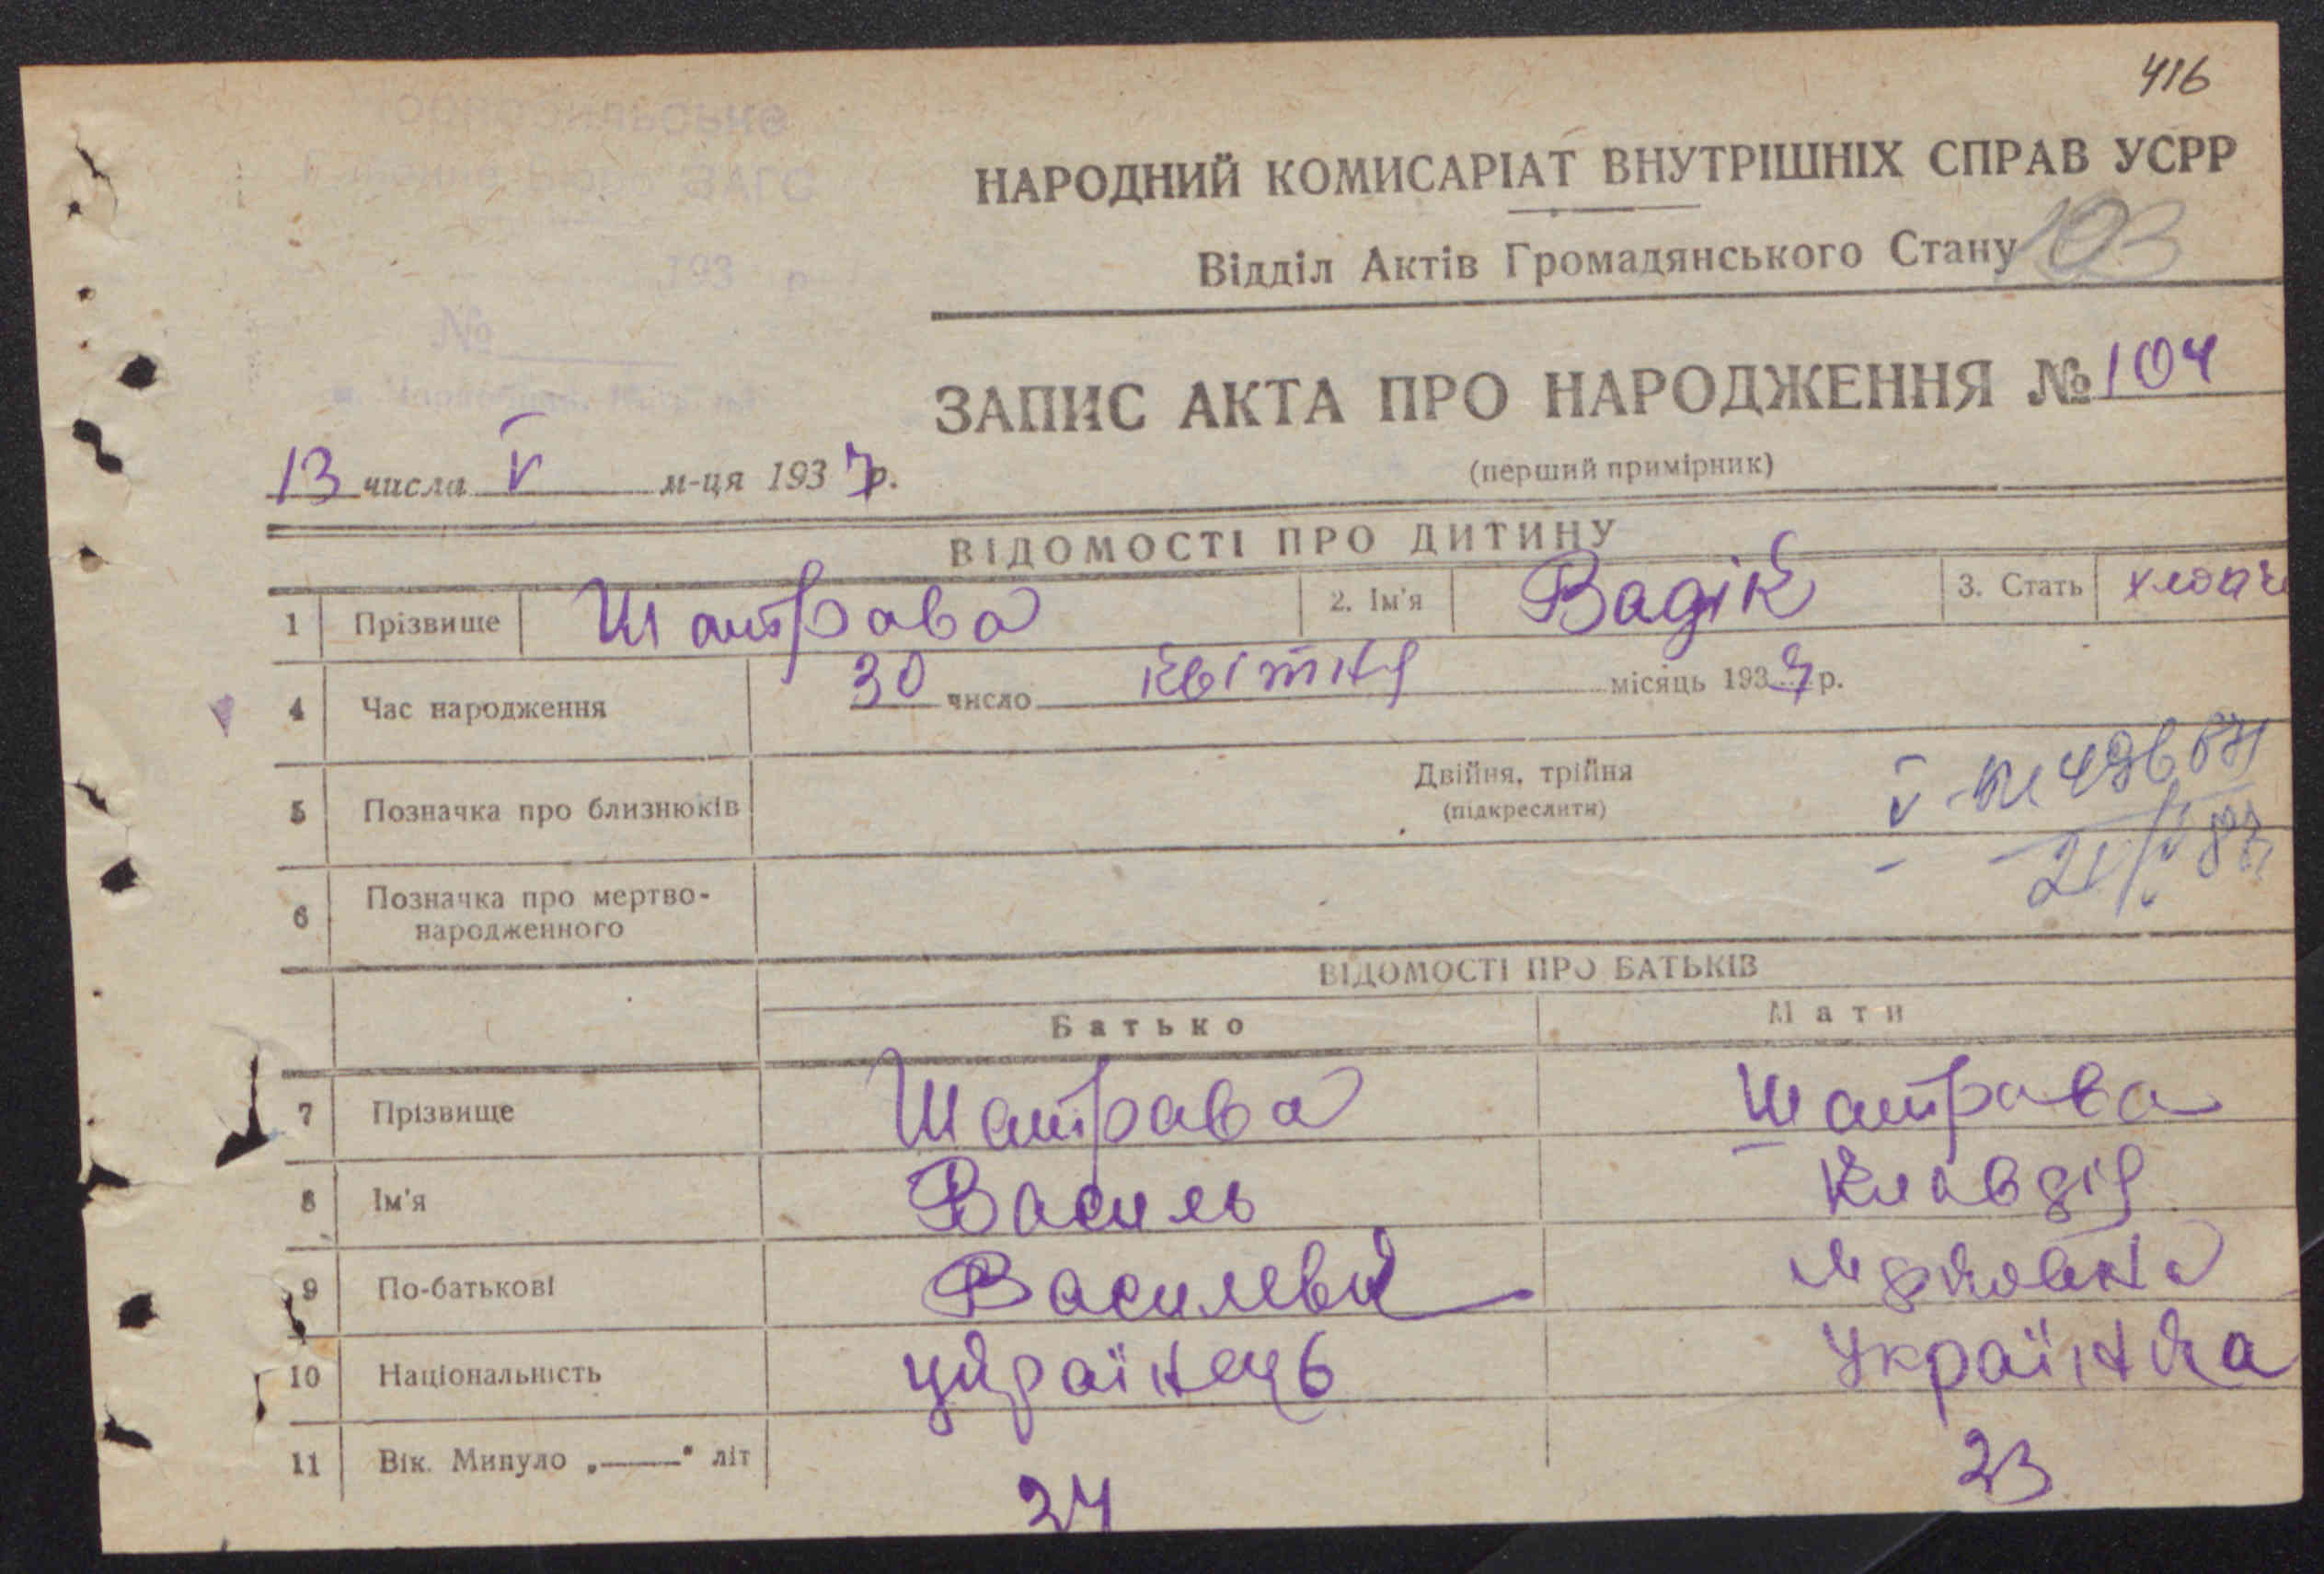 416
НАРОДНИЙ КОМИСАРІАТ ВНУТРІШНІХ СПРАВ УСРР
Відділ Актів Громадянського Стану 103
193 р
№
ЗАПИС АКТА ПРО НАРОДЖЕННЯ № 104
(перший примірник)
13 числа V м-ця 1937 р.
ВІДОМОСТІ ПРО ДИТИНУ
1 Прізвище Шатрава 2. Ім'я Вадік 3. Стать хлопч
4 Час народження 30 число квітня місяць 1937 р.
5 Позначка про близнюків Двійня, трійня
(підкреслити)
6 Позначка про мертво-
народженного
ВІДОМОСТІ ПРО БАТЬКІВ
Батько Мати
7 Прізвище Шатрава Шатрава
8 Ім'я Василь Клавдія
9 По-батькові Василеви
10 Національність українець Українка
11 Вік. Минуло „——“ літ 24 23